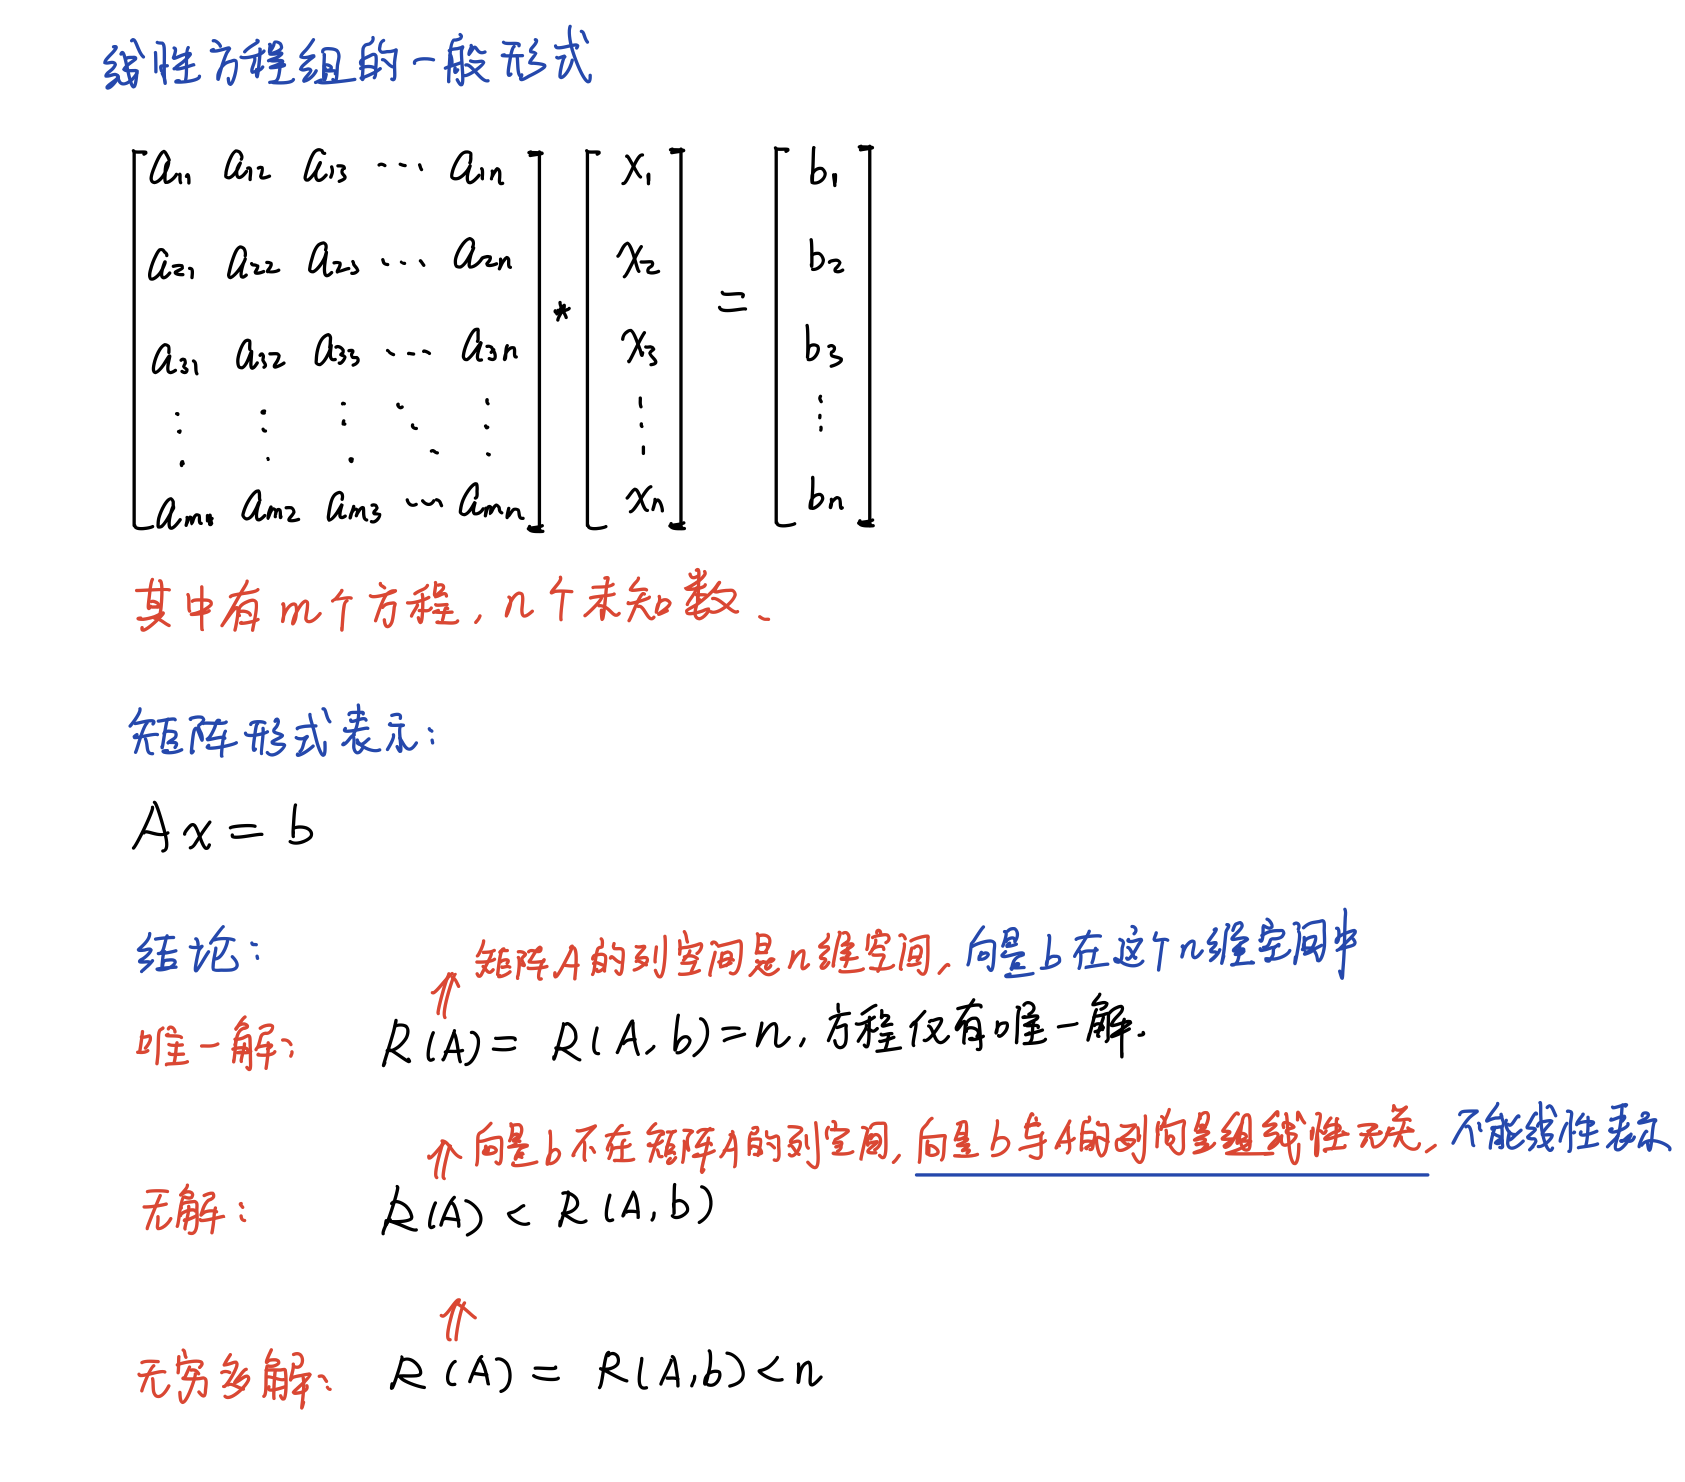 线性方程组的一般形式
a11 a12 a13 ... a1n x1 b1
a21 a22 a23 ... a2n x2 b2
* =
a31 a32 a33 ... a3n x3 b3
⋮ ⋮ ⋮ ⋱ ⋮ ⋮ ⋮
am1 am2 am3 ... amn xn bn
其中有m个方程,n个未知数、
矩阵形式表示:
Ax = b
结论:
⇑ 矩阵A的列空间是n维空间,向量b在这个n维空间中
唯一解: R(A) = R(A, b) = n, 方程仅有唯一解.
⇑ 向量b不在矩阵A的列空间,向量b与A的列向量组线性无关,不能线性表示
无解: R(A) < R(A, b)
⇑
无穷多解: R(A) = R(A,b) < n